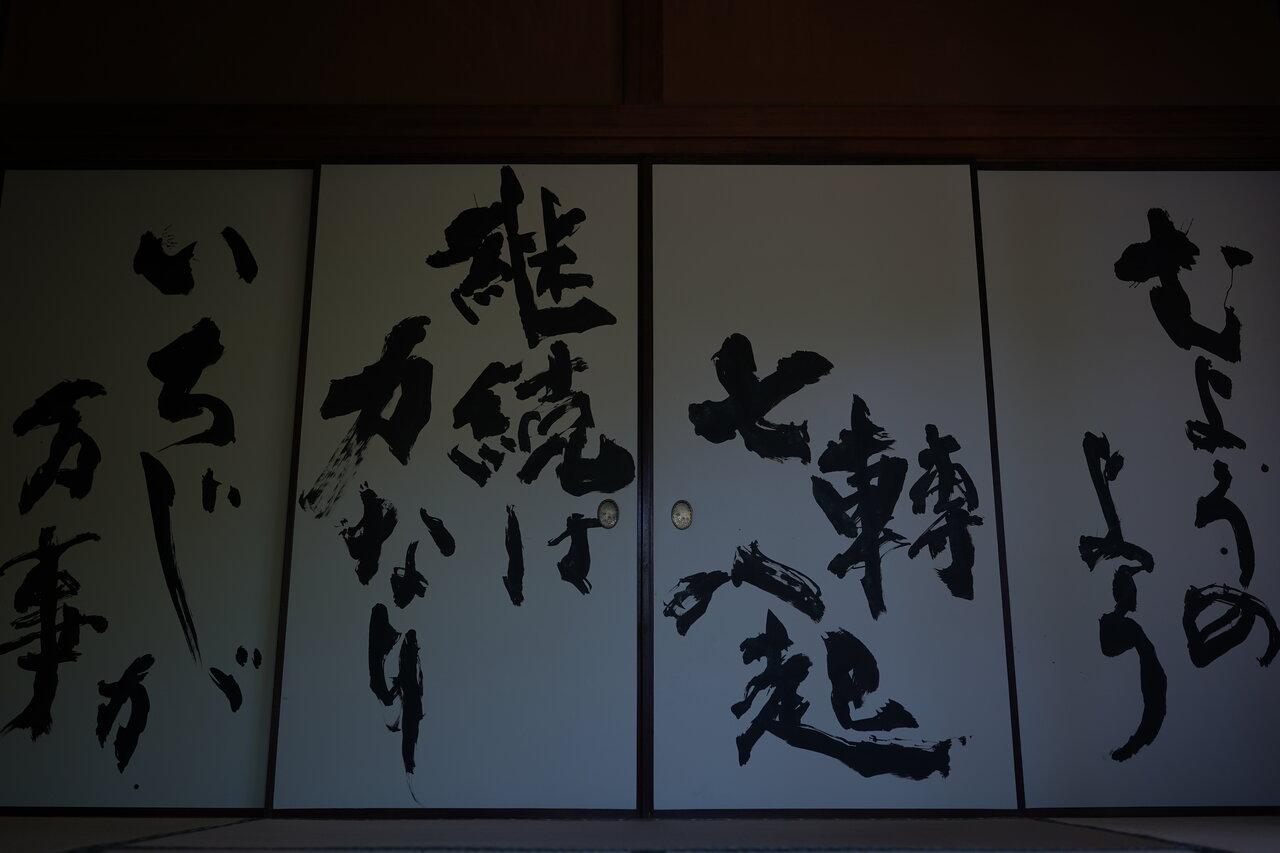 むようの
よう
七轉
八起
継続は
力なり
いちじが
万事